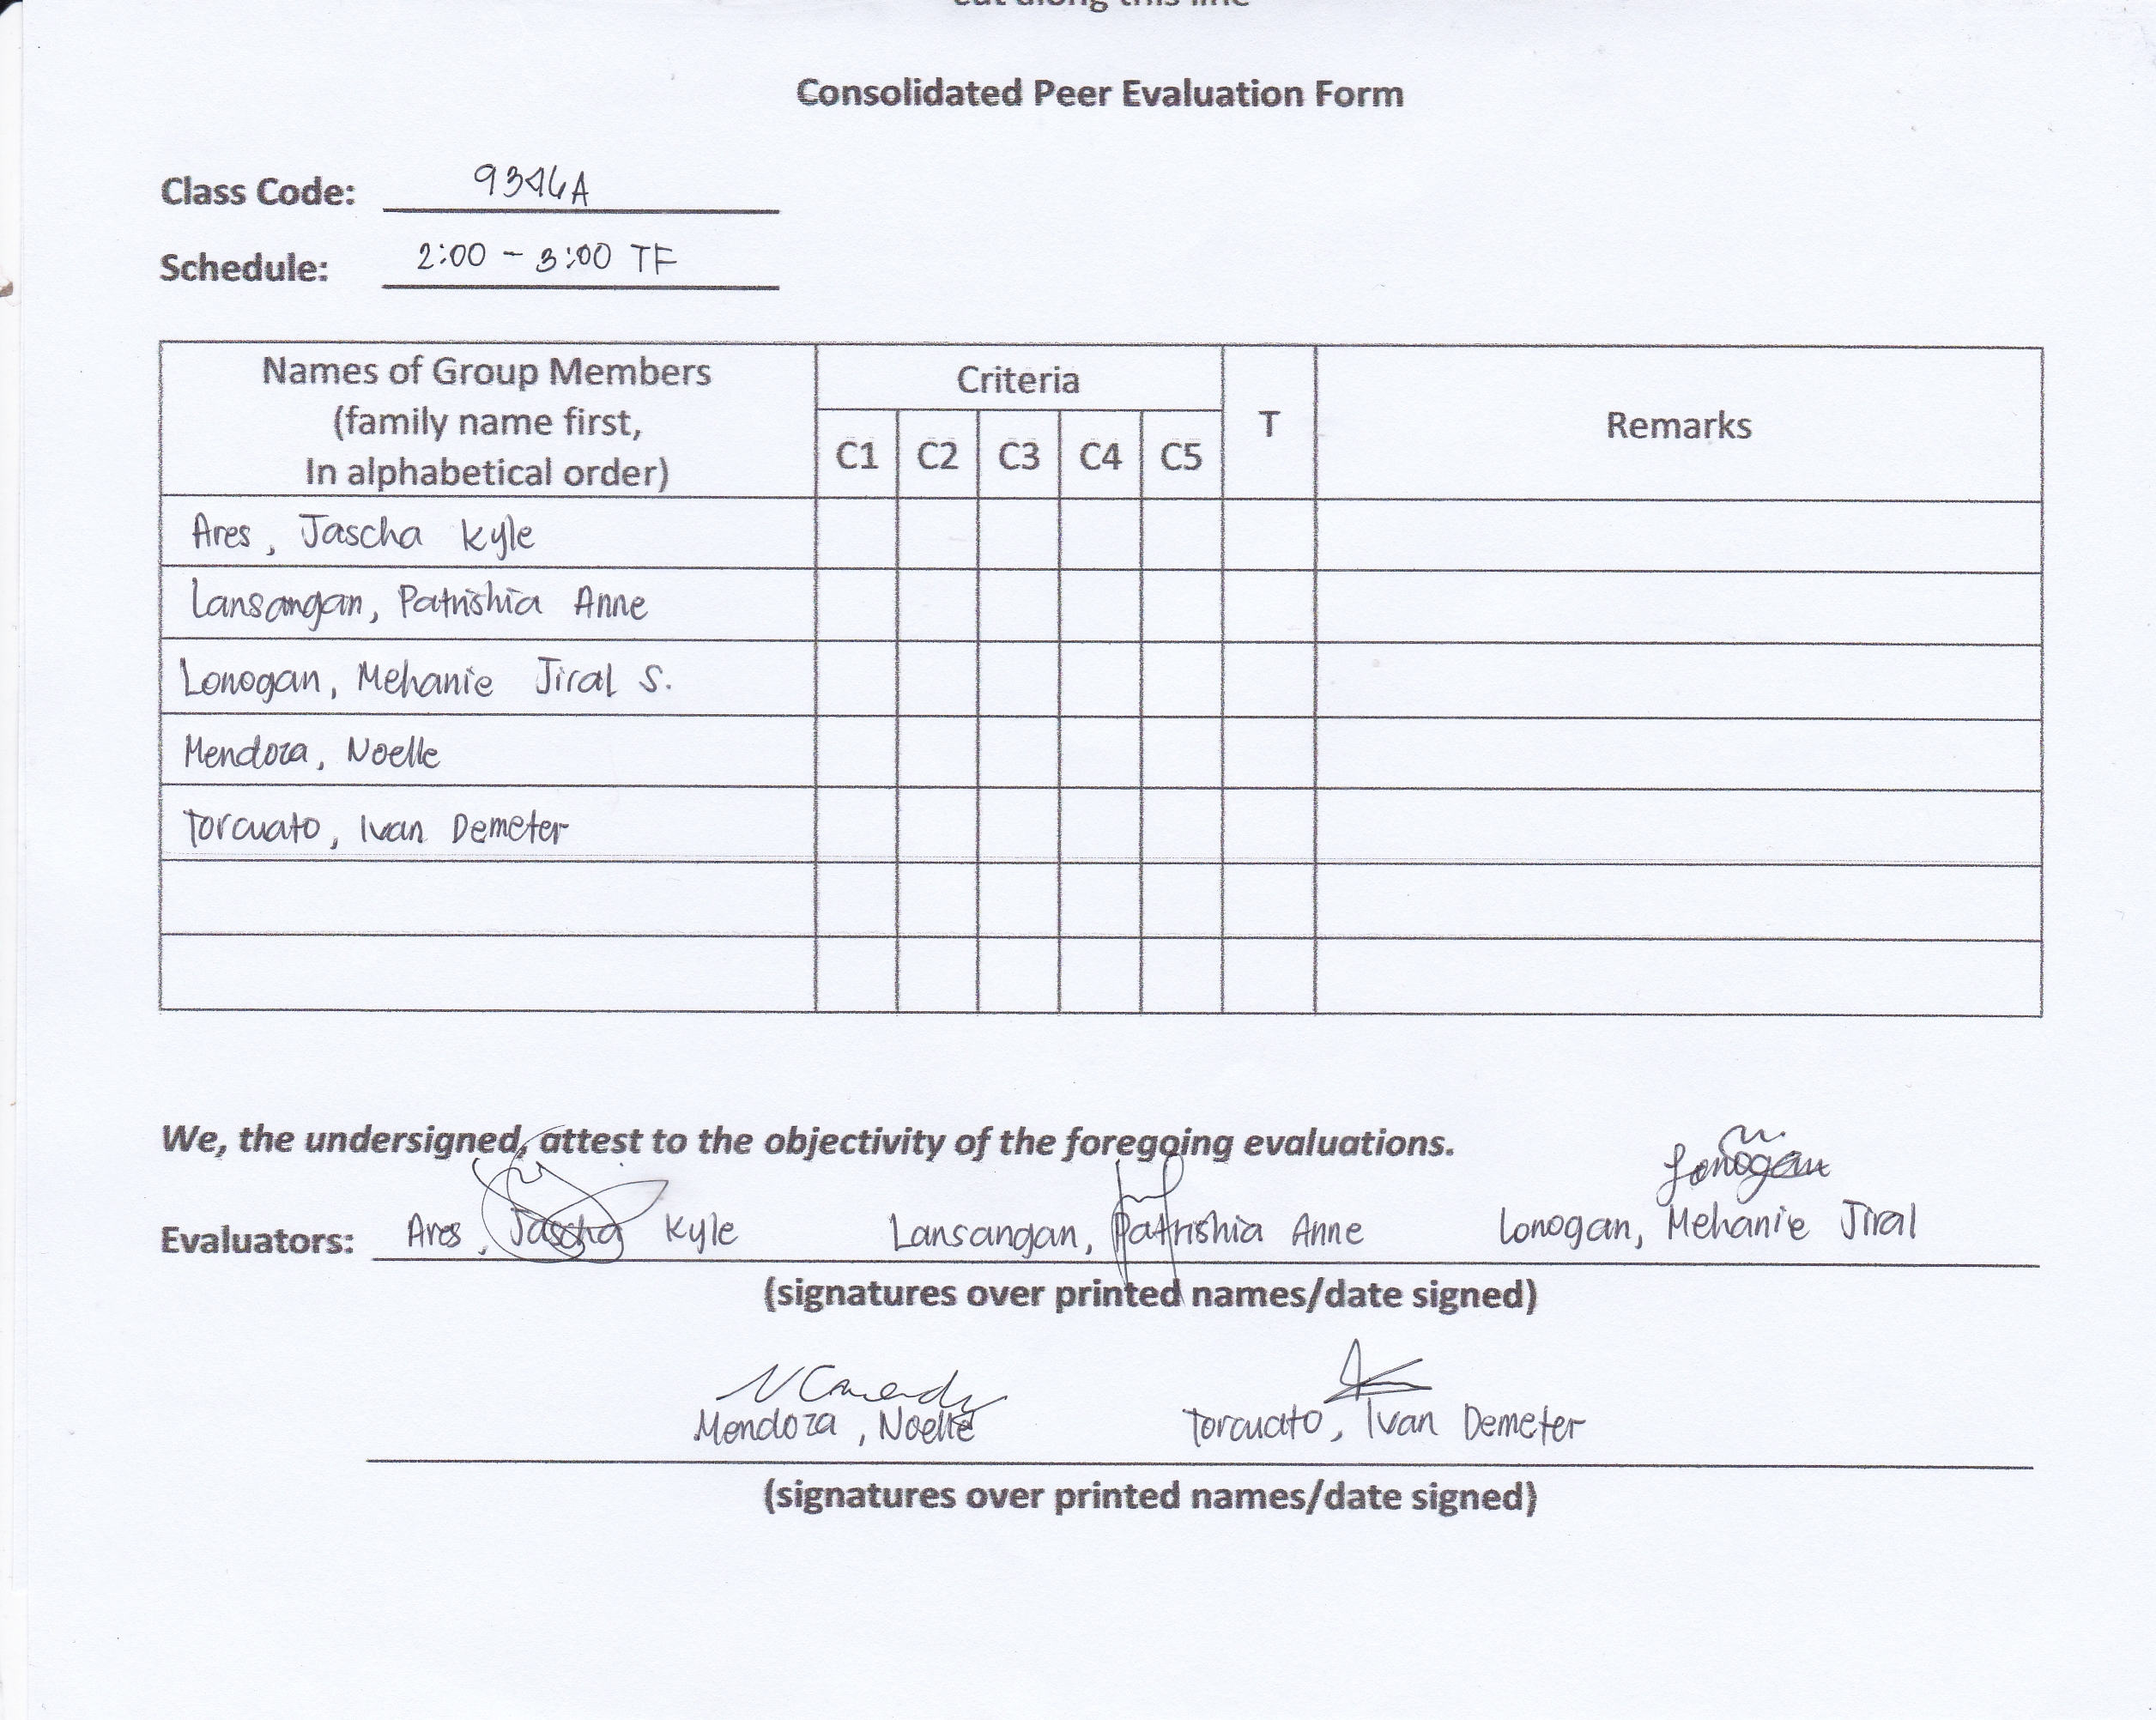 cut along this line
Consolidated Peer Evaluation Form
Class Code: 9346A
Schedule: 2:00 - 3:00 TF
Names of Group Members
(family name first,
In alphabetical order)
Criteria
C1 C2 C3 C4 C5
T
Remarks
Ares, Jascha Kyle
Lansangan, Patrishia Anne
Lonogan, Mehanie Jiral S.
Mendoza, Noelle
Torcuato, Ivan Demeter
We, the undersigned, attest to the objectivity of the foregoing evaluations.
Lonogan
Evaluators: Ares, Jascha Kyle Lansangan, Patrishia Anne Lonogan, Mehanie Jiral
(signatures over printed names/date signed)
Mendoza, Noelle Torcuato, Ivan Demeter
(signatures over printed names/date signed)